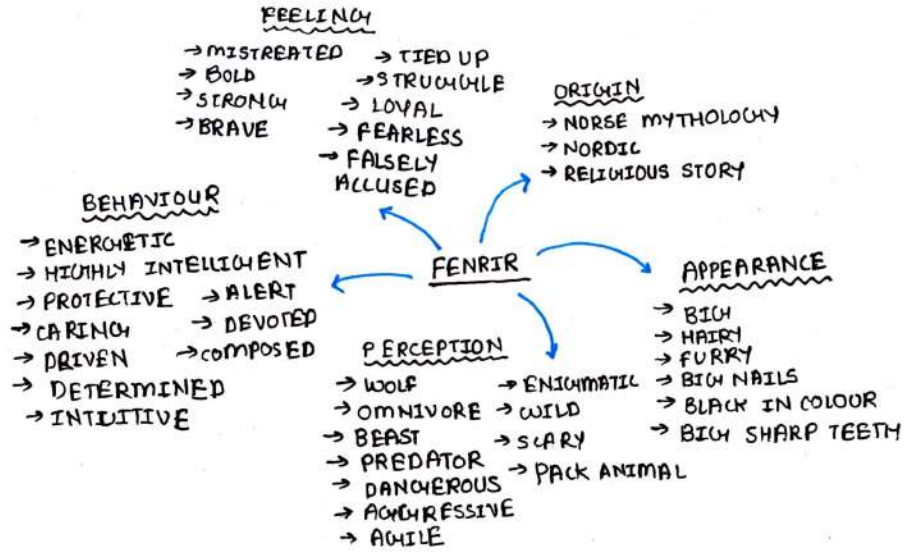 FEELING
→ MISTREATED
→ BOLD
→ STRONG
→ BRAVE
→ TIED UP
→ STRUGGLE
→ LOYAL
→ FEARLESS
→ FALSELY
ACCUSED
ORIGIN
→ NORSE MYTHOLOGY
→ NORDIC
→ RELIGIOUS STORY
BEHAVIOUR
→ ENERGETIC
→ HIGHLY INTELLIGENT
→ PROTECTIVE
→ CARING
→ DRIVEN
→ DETERMINED
→ INTUITIVE
→ ALERT
→ DEVOTED
→ COMPOSED
FENRIR
APPEARANCE
→ BIG
→ HAIRY
→ FURRY
→ BIG NAILS
→ BLACK IN COLOUR
→ BIG SHARP TEETH
PERCEPTION
→ WOLF
→ OMNIVORE
→ BEAST
→ PREDATOR
→ DANGEROUS
→ AGGRESSIVE
→ AGILE
→ ENIGMATIC
→ WILD
→ SCARY
→ PACK ANIMAL